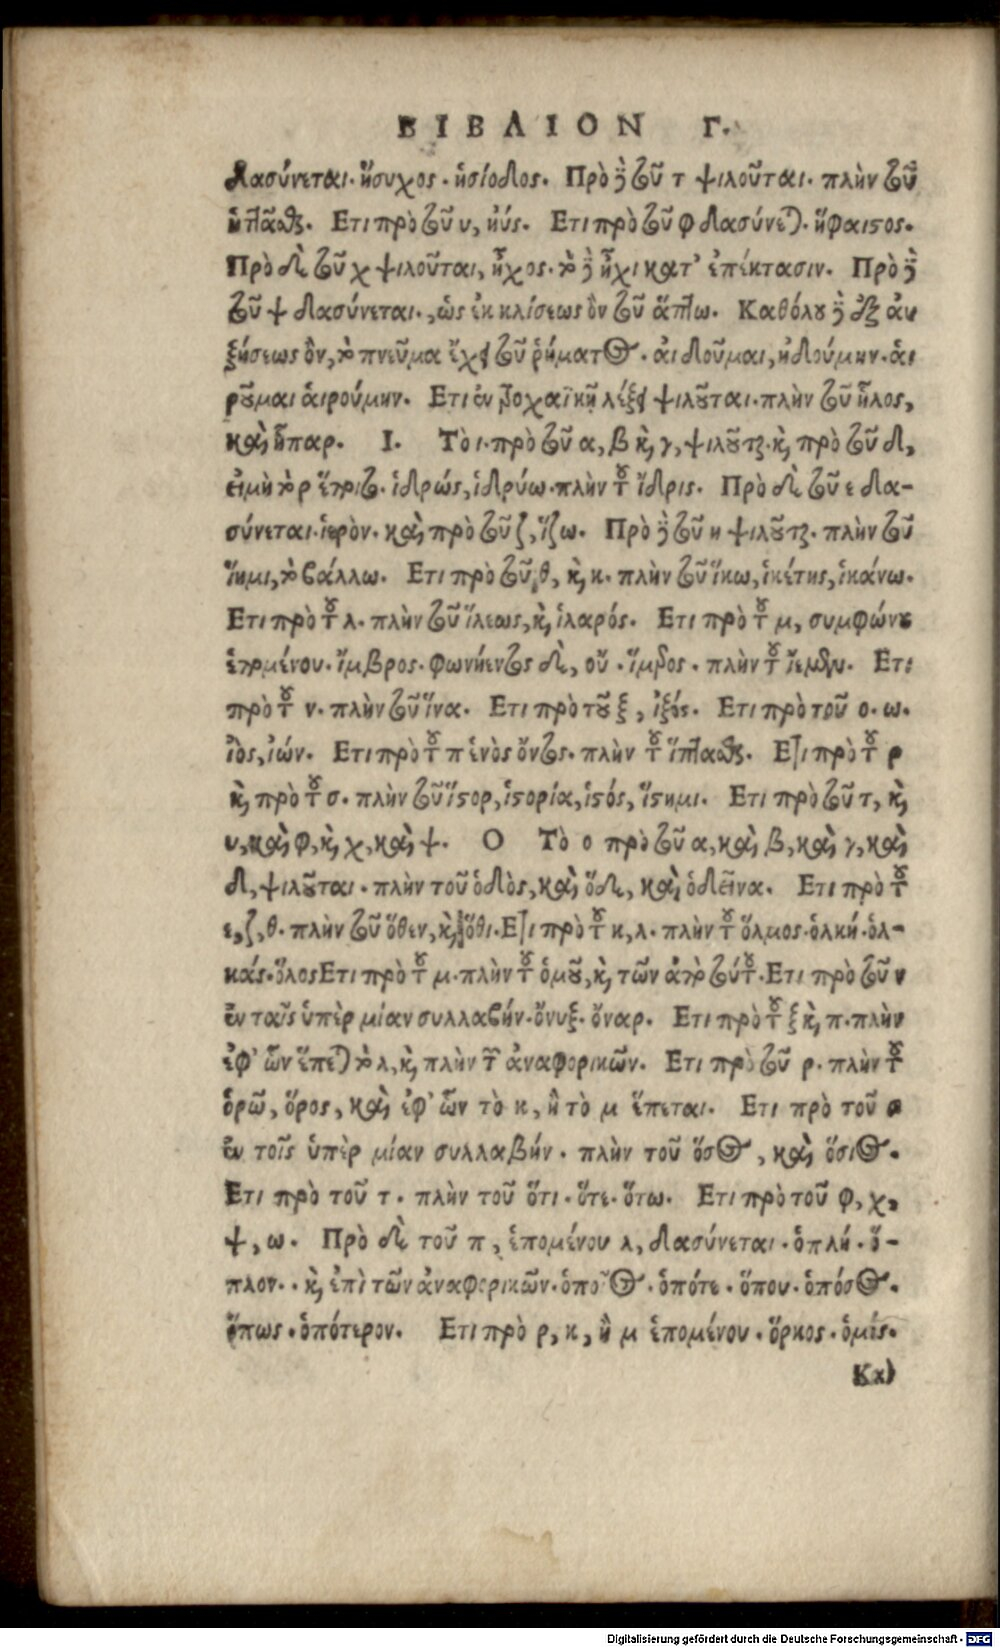 ΒΙΒΛΙΟΝ Γ.
δασύνεται. ἥσυχος. ἡσίοδος. Πρὸ δὲ τοῦ τ ψιλοῦται. πλὴν τοῦ
ἡττᾶσθαι. Ετι πρὸ τοῦ υ, ἠύς. Ετι πρὸ τοῦ φ δασύνεται. ἥφαιστος.
Πρὸ δὲ τοῦ χ ψιλοῦται, ἦχος. καὶ γὰρ ἧχι κατ' ἐπέκτασιν. Πρὸ δὲ
τοῦ ψ δασύνεται., ὡς ἐκ κλίσεως ὂν τοῦ ἅπτω. Καθόλου δὲ ἐξ αὐ
ξήσεως ὂν, τὸ πνεῦμα ἔχει τοῦ ῥήματος. αἰδοῦμαι, ἠδούμην. αἱ
ροῦμαι ᾑρούμην. Ετι ἐν ἀρχαϊκῇ λέξει ψιλοῦται. πλὴν τοῦ ἧλος,
καὶ ἧπαρ. Ι. Τὸ ι. πρὸ τοῦ α, β καὶ, γ, ψιλοῦται. καὶ, πρὸ τοῦ δ,
εἰ μὴ τὸ ρ ἕποιτο. ἱδρώς, ἱδρύω. πλὴν τοῦ ἴδρις. Πρὸ δὲ τοῦ ε δα-
σύνεται. ἱερὸν. καὶ πρὸ τοῦ ζ, ἵζω. Πρὸ δὲ τοῦ η ψιλοῦται. πλὴν τοῦ
ἵημι, τὸ βάλλω. Ετι πρὸ τοῦ θ, καὶ, κ. πλὴν τοῦ ἵκω, ἱκέτης, ἱκάνω.
Ετι πρὸ τοῦ λ. πλὴν τοῦ ἵλεως, καὶ, ἱλαρός. Ετι πρὸ τοῦ μ, συμφώνου
ἑπομένου. ἴμβρος. φωνήεντος δὲ, οὔ. ἵμερος. πλὴν τοῦ
πρὸ τοῦ ν. πλὴν τοῦ ἵνα. Ετι πρὸ τοῦ ξ, ἰξός. Ετι πρὸ τοῦ ο. ω.
ἰὸς, ἰών. Ετι πρὸ τοῦ π ἑνὸς ὄντος. πλὴν τοῦ ἵπτασθαι. Ετι πρὸ τοῦ ρ
καὶ, πρὸ τοῦ σ. πλὴν τοῦ ἵστορ, ἱστορία, ἱστός, ἵστημι. Ετι πρὸ τοῦ τ, καὶ,
υ, καὶ φ, καὶ, χ, καὶ, ψ. Ο Τὸ ο πρὸ τοῦ α, καὶ, β, καὶ, γ, καὶ,
δ, ψιλοῦται. πλὴν τοῦ ὁδὸς, καὶ, ὅδε, καὶ, ὁδεῖνα. Ετι πρὸ τοῦ
ε, ζ, θ. πλὴν τοῦ ὅθεν, καὶ, ὅθι. Ετι πρὸ τοῦ κ, λ. πλὴν τοῦ ὅλμος. ὁλκή. ὁλ-
κάς. ὅλος Ετι πρὸ τοῦ μ. πλὴν τοῦ ὁμοῦ, καὶ, τῶν ἀπὸ τούτου. Ετι πρὸ τοῦ ν
ἐν ταῖς ὑπὲρ μίαν συλλαβήν. ὄνυξ. ὄναρ. Ετι πρὸ τοῦ ξ καὶ, π. πλὴν
ἐφ' ὧν ἕπεται τὸ λ, καὶ, πλὴν τῶν ἀναφορικῶν. Ετι πρὸ τοῦ ρ. πλὴν τοῦ
ὁρῶ, ὅρος, καὶ, ἐφ' ὧν τὸ κ, ἢ τὸ μ ἕπεται. Ετι πρὸ τοῦ σ
ἐν τοῖς ὑπὲρ μίαν συλλαβήν. πλὴν τοῦ ὅσος, καὶ, ὅσιος.
Ετι πρὸ τοῦ τ. πλὴν τοῦ ὅτι. ὅτε. ὅτω. Ετι πρὸ τοῦ φ, χ,
ψ, ω. Πρὸ δὲ τοῦ π, ἑπομένου λ, δασύνεται. ὁπλή. ὅ-
πλον.. καὶ, ἐπὶ τῶν ἀναφορικῶν. ὁποῖος. ὁπότε. ὅπου. ὁπόσος.
ὅπως. ὁπότερον. Ετι πρὸ ρ, κ, ἢ μ ἑπομένου. ὅρκος. ὁρμίς.
Καὶ
Digitalisierung gefördert durch die Deutsche Forschungsgemeinschaft - DFG